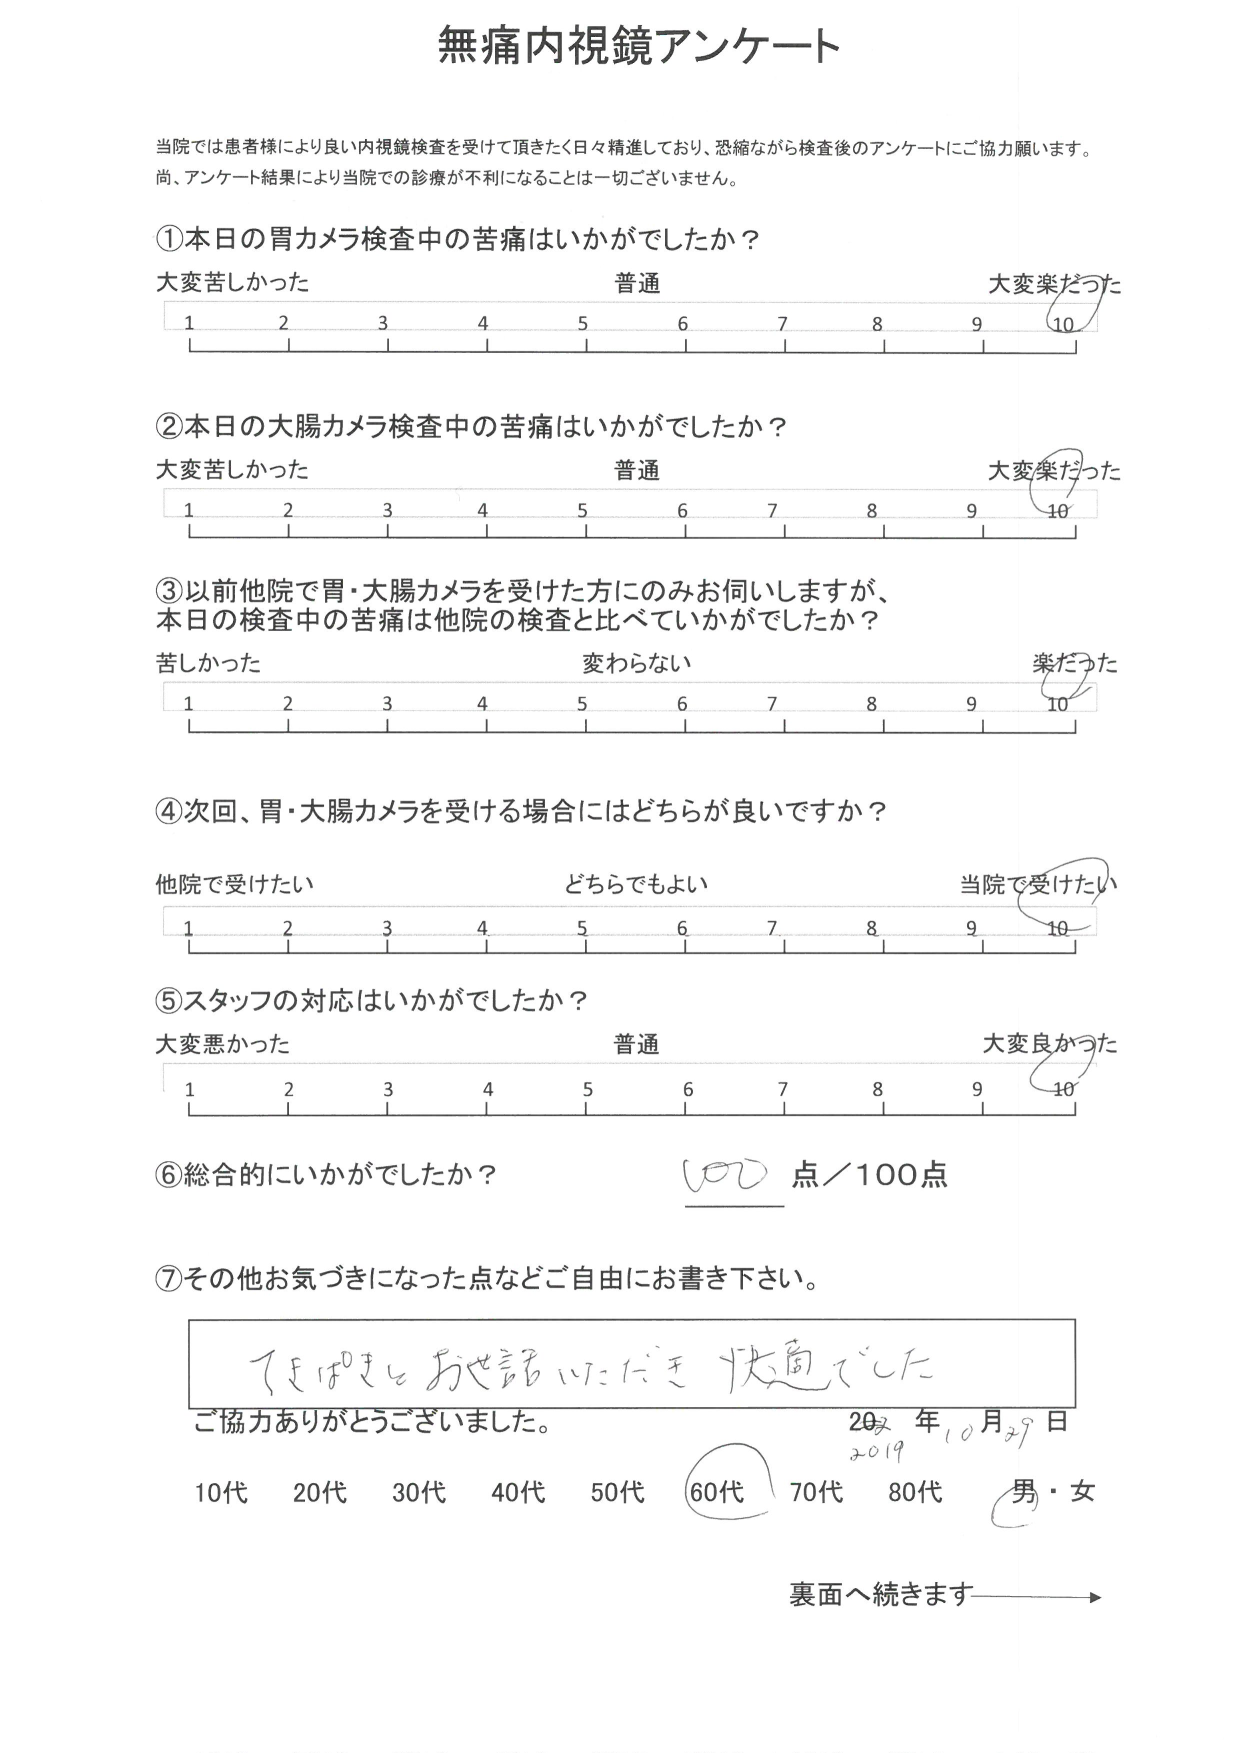 無痛内視鏡アンケート
当院では患者様により良い内視鏡検査を受けて頂きたく日々精進しており、恐縮ながら検査後のアンケートにご協力願います。
尚、アンケート結果により当院での診療が不利になることは一切ございません。
①本日の胃カメラ検査中の苦痛はいかがでしたか？
大変苦しかった 普通 大変楽だった
1 2 3 4 5 6 7 8 9 10
②本日の大腸カメラ検査中の苦痛はいかがでしたか？
大変苦しかった 普通 大変楽だった
1 2 3 4 5 6 7 8 9 10
③以前他院で胃・大腸カメラを受けた方にのみお伺いしますが、
本日の検査中の苦痛は他院の検査と比べていかがでしたか？
苦しかった 変わらない 楽だった
1 2 3 4 5 6 7 8 9 10
④次回、胃・大腸カメラを受ける場合にはどちらが良いですか？
他院で受けたい どちらでもよい 当院で受けたい
1 2 3 4 5 6 7 8 9 10
⑤スタッフの対応はいかがでしたか？
大変悪かった 普通 大変良かった
1 2 3 4 5 6 7 8 9 10
⑥総合的にいかがでしたか？ 100 点／100点
⑦その他お気づきになった点などご自由にお書き下さい。
てきぱきとお世話いただき 快適でした
ご協力ありがとうございました。 202 年10月29日
2019
10代 20代 30代 40代 50代 60代 70代 80代 男・女
裏面へ続きます